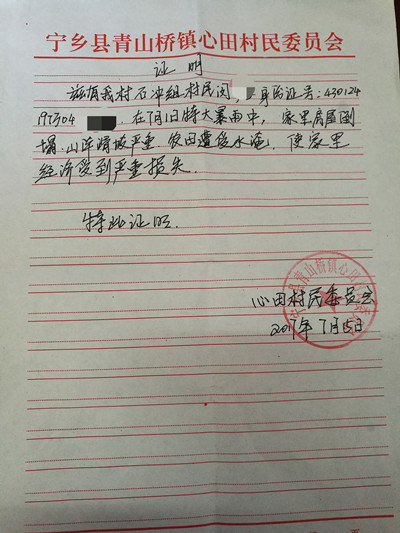 宁乡县青山桥镇心田村民委员会
证明
兹有我村石冲组村民闵 身份证号:430124
197304 在7月1日特大暴雨中,家里房屋倒
塌.山洋滑坡严重.农田遭受水淹,使家里
经济受到严重损失.
特此证明.
心田村民委员会
2017年7月15日